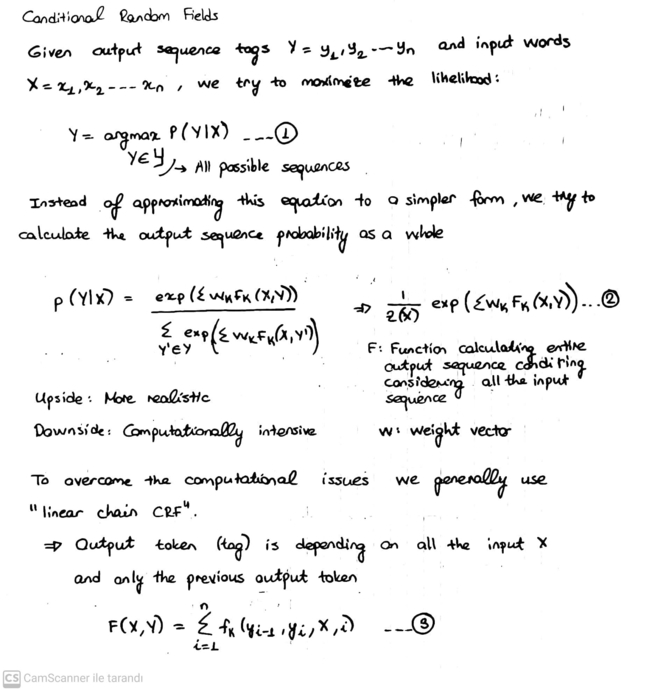 Conditional Random Fields
Given output sequence tags Y = y₁, y₂ --- yₙ and input words
X = x₁, x₂ --- xₙ , we try to maximize the likelihood:
Y = argmax P(Y|X) ---①
Y∈𝒴 → All possible sequences
Instead of approximating this equation to a simpler form, we try to
calculate the output sequence probability as a whole
p(Y|X) = exp(Σ wₖFₖ(X,Y)) / Σ_{Y'∈Y} exp(Σ wₖFₖ(X,Y')) ⇒ 1/Z(X) exp(Σ wₖ Fₖ(X,Y))...②
F: Function calculating entire
output sequence
considering all the input
sequence
Upside: More realistic
Downside: Computationally intensive
w: weight vector
To overcome the computational issues we generally use
"linear chain CRF".
⇒ Output token (tag) is depending on all the input X
and only the previous output token
F(X,Y) = Σ_{i=1}^{n} fₖ(yᵢ₋₁, yᵢ, X, i) ---③
CS CamScanner ile tarandı